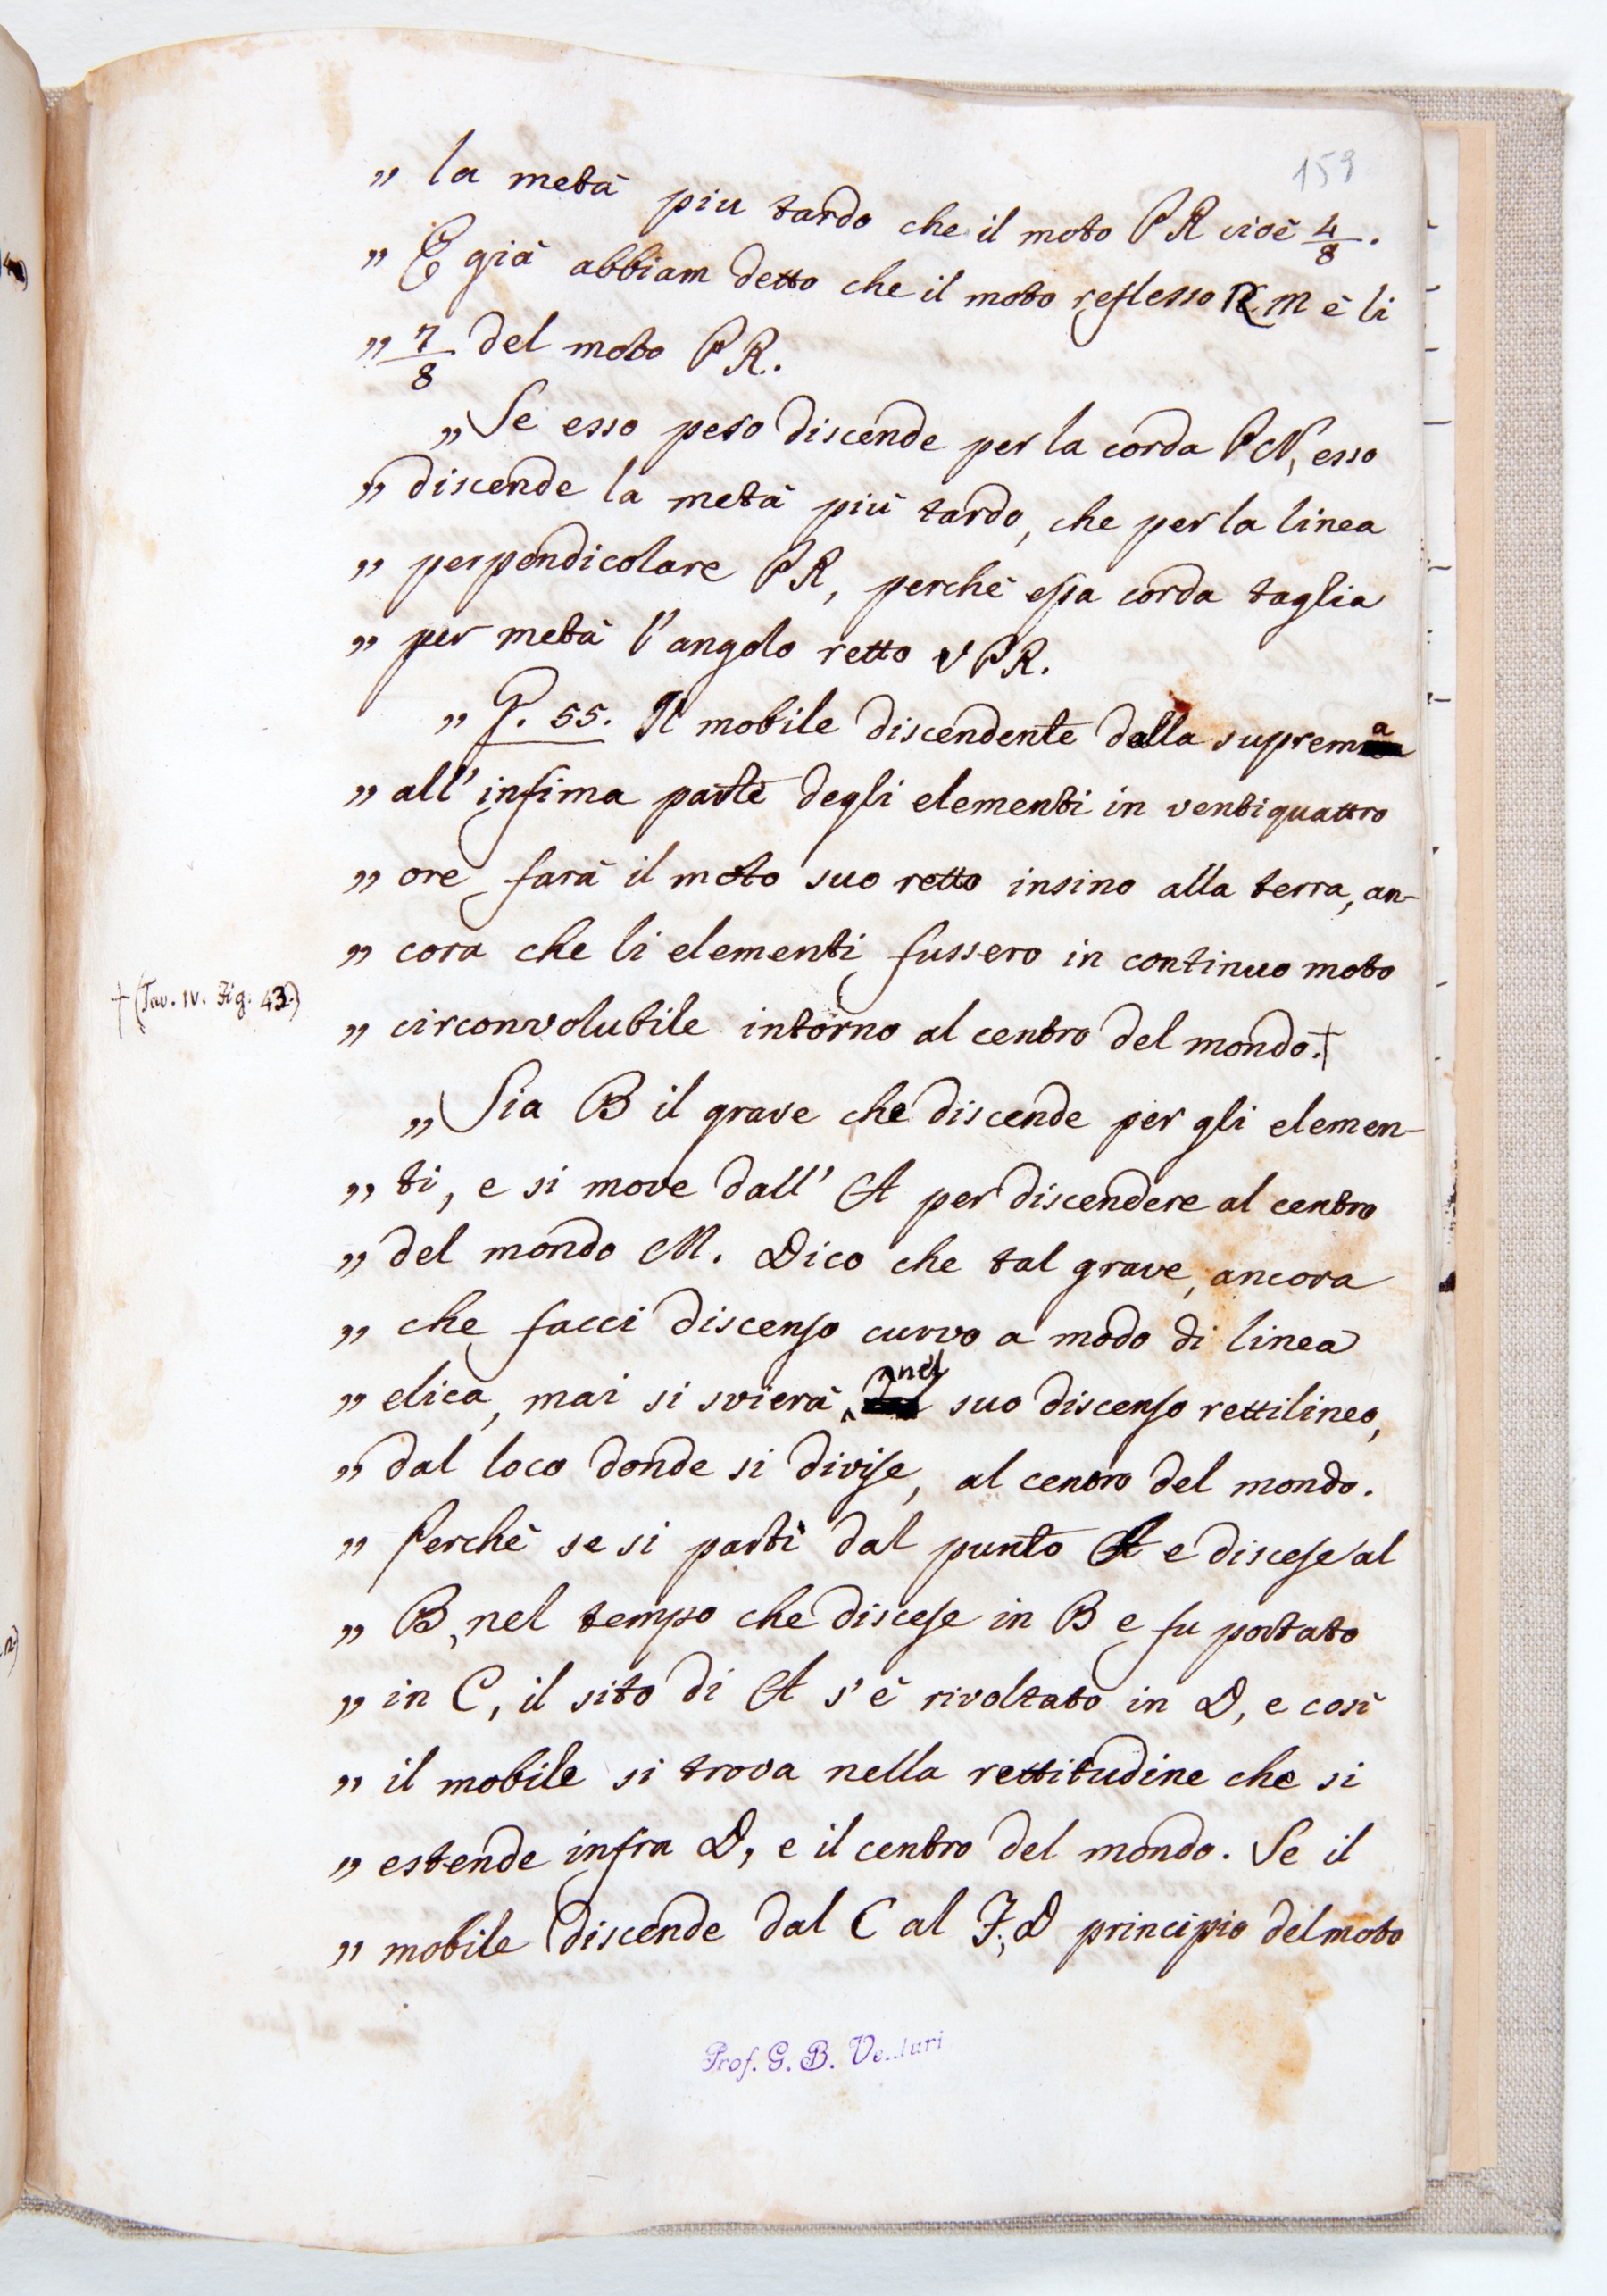 159
„ la metà piu tardo che il moto PR cioè 4/8.
„ E già abbiam detto che il moto reflesso RM è li
„ 7/8 del moto PR.
„ Se esso peso discende per la corda PN, esso
„ discende la metà più tardo, che per la linea
„ perpendicolare PR, perchè essa corda taglia
„ per metà l'angolo retto VPR.
„ P. 55. Il mobile discendente dalla suprema
„ all'infima parte degli elementi in ventiquattro
„ ore farà il moto suo retto insino alla terra, an-
„ cora che li elementi fussero in continuo moto
+ (Tav. IV. Fig. 43.)
„ circonvolubile intorno al centro del mondo.+
„ Sia B il grave che discende per gli elemen-
„ ti, e si move dall' A per discendere al centro
„ del mondo M. Dico che tal grave, ancora
„ che facci discenso curvo a modo di linea
„ elica, mai si svierà, nel suo discenso rettilineo,
„ dal loco donde si divise, al centro del mondo.
„ Perchè se si partì dal punto A e discese al
„ B, nel tempo che discese in B e fu portato
„ in C, il sito di A s'è rivoltato in D, e così
„ il mobile si trova nella rettitudine che si
„ estende infra D, e il centro del mondo. Se il
„ mobile discende dal C al F, D principio del moto
Prof. G. B. Venturi